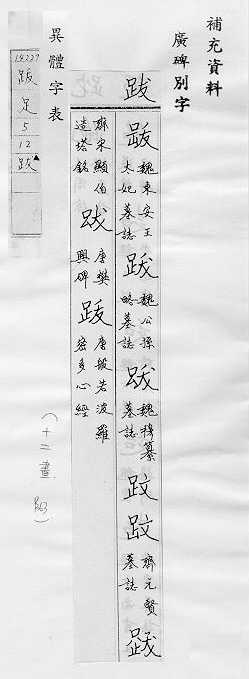 補充資料
廣碑別字
跋
魏東安王
太妃墓誌
跋
魏公孫
略墓誌
跋
魏穆纂
墓誌
齊元賢
墓誌
齊宋顯伯
造塔銘
跋
唐樊
興碑
跋
唐般若波羅
密多心經
(十二畫
異體字表
跋
足
5
12
跋